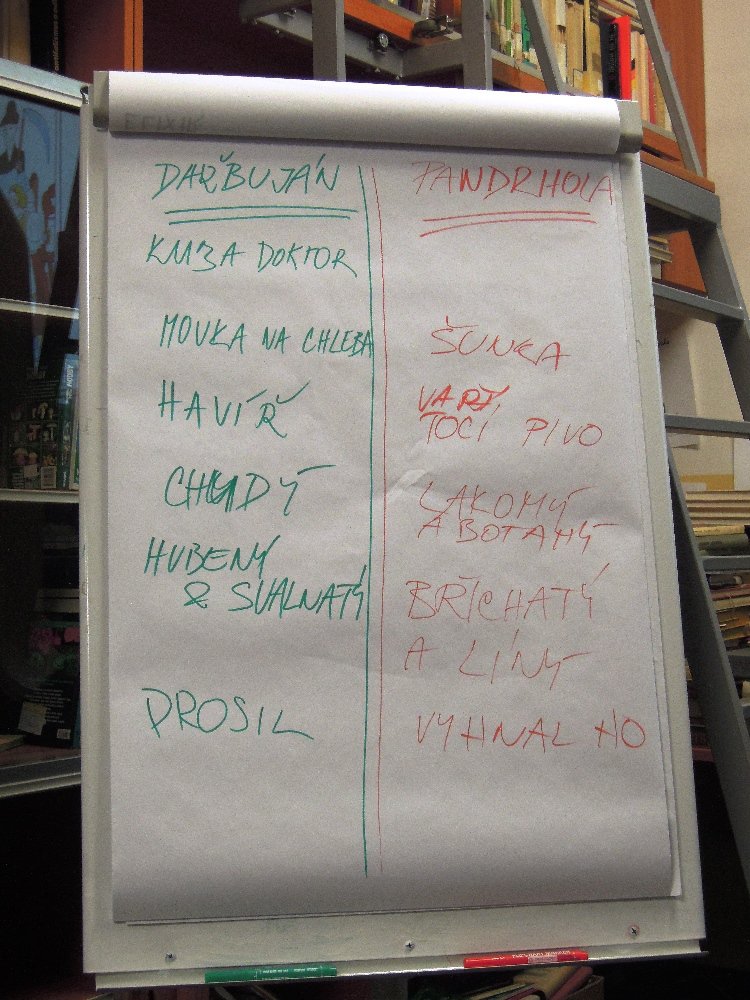 DAŘBUJÁN
KMZA DOKTOR
MOUKA NA CHLEBA
HAVÍŘ
CHUDÝ
HUBENÝ
& SVALNATÝ
PROSIL
PANDRHOLA
ŠUNKA
VAŘÍ,
TOČÍ PIVO
LAKOMÝ
A BOTAHÝ
BŘICHATÝ
A LÍNÝ
VYHNAL HO